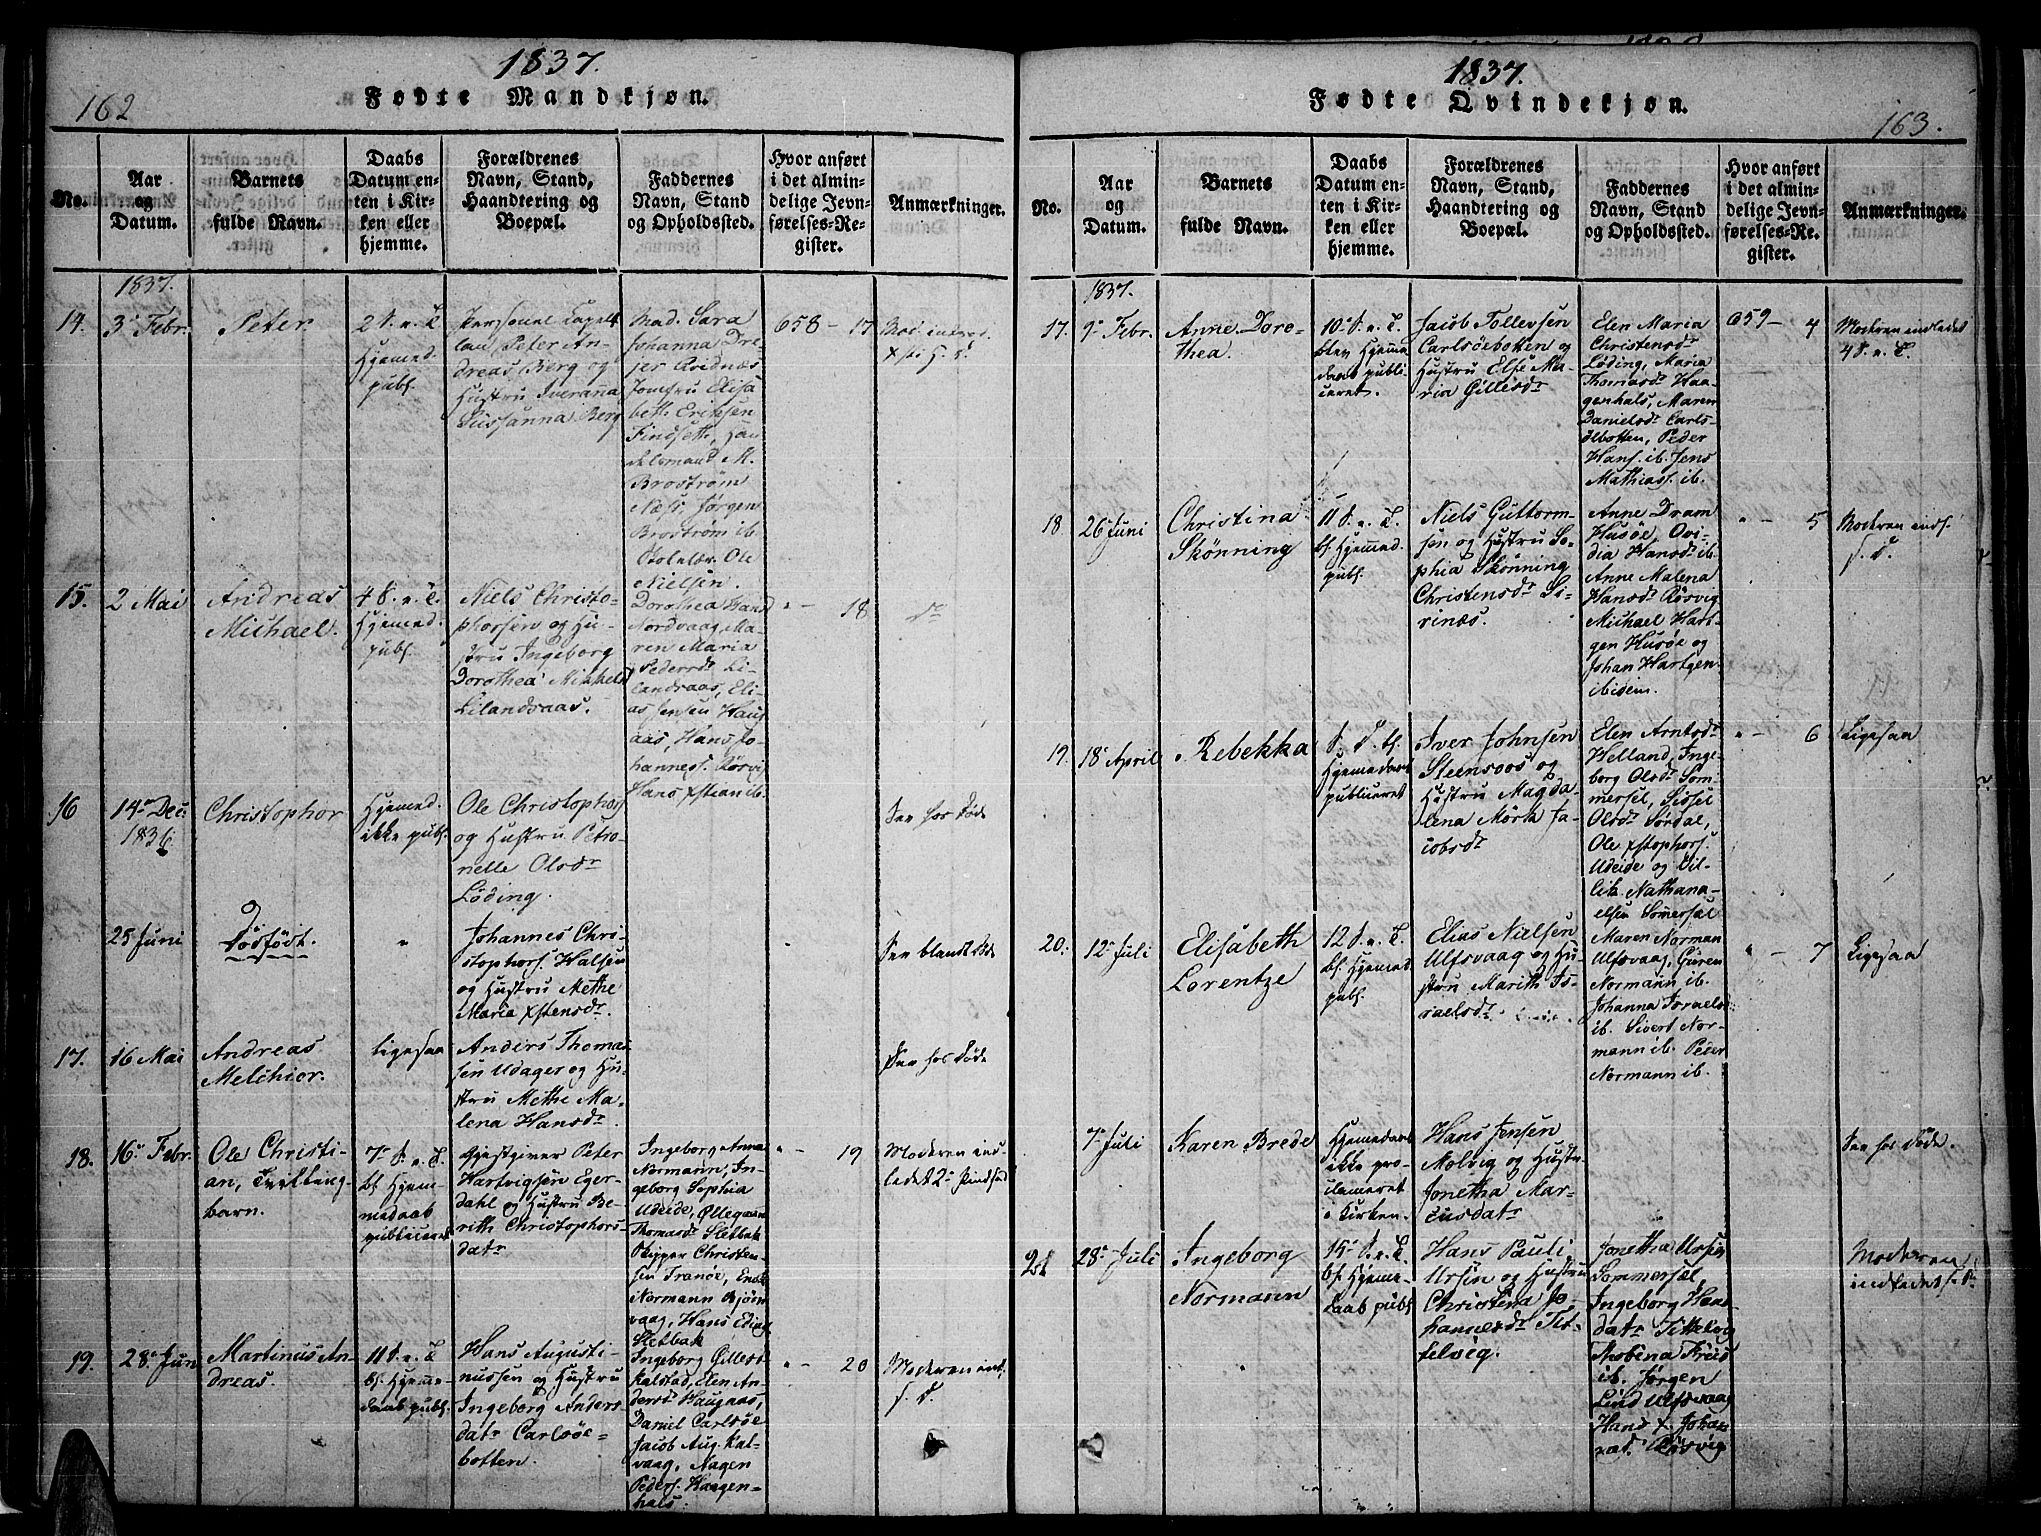 162
1837.
Fødte Mandkjøn.
No.
Aar
og
Datum.
Barnets
fulde Navn.
Daabs
Datum en-
ten i Kir-
ken eller
hjemme.
Forældrenes
Navn, Stand,
Haandtering og
Boepæl.
Faddernes
Navn, Stand
og Opholdssted.
Hvor anført
i det almin-
delige Jevn-
førelses-Re-
gister.
Anmærkninger.
1837.
14.
3 Febr.
Peter
2 S. e. T.
Hjemmed.
publ.
Personel Capel-
lan Peter An-
dreas Berg og
Hustru Iverana
Susanna Berg
Mad. Sara
Johanna Dre-
jer Qvidnæs
Jomfru Elisa
beth Eriksen
Findseth, Han
delsmand M.
Brostrøm
Næss, Jørgen
Brostrøm ib.
Ole
Nielsen.
658 - 17
15.
2 Mai
Andreas
Michael.
4 S. e. T.
Hjemmed.
publ.
Niels Christo-
phersen og Hu-
stru Ingeborg
Dorothea Mikkelsd
Lilandsaas.
Dorothea Hansd
Nordvaag, Ma-
ren Maria
Pedersdr Li-
landsaas, Eli-
as Jensen Haug
aas, Hans Jo-
hanness. Rørvig
Hans Xstian ib.
" - 18
do
16
14de Dec.
1836
Christophor
Hjemmed.
ikke publ.
Ole Christophers
og Hustru Petro-
nelle Olsdr
Løding.
See hos Døde
25 Juni
Dødfødt.
"
Johannes Chri-
stophers. Halsen
og Hustru Methe
Maria Xstensdr.
See blandt Døde
17.
16 Mai
Andreas
Melchior.
Ligesaa
Anders Thoma-
sen Udager og Hu-
stru Methe Ma-
lena Hansdr
See hos Døde
18.
16de Febr.
Ole Christi-
an, Tvilling-
barn.
7de S. e. T.
bl. Hjem-
medaab
publiceret
Gjestgiver Peter
Hartvigsen Eger-
dahl og Hustru Be-
rith Christophers-
datr
Ingeborg Anna
Normann, In-
geborg Sophia
Udeide, Ollegaan
Thomasdr Sletbak
Skipper Christen-
sen Tranøe,
Normann Bjørn
vaag, Hans Edias
Sletbak
" - 19
Moderen ind-
ledet 2den Pindsed
19.
28de Jun
Martinus An-
dreas.
11 S. e. T.
bl. Hjemme-
daab publ.
Hans Augusti-
nussen og Hustru
Ingeborg Anders-
datr Carlsøe-
botten.
Ingeborg Gillesdr
Kalstad, Elen An-
dersdr Haugnæs,
Daniel Carlsøe
Jacob Aug. Kal-
vaag, Aagen
Peders. Haagen-
hals.
" - 20
Moderen ind.
s. D.
1837.
Fødte Qvindekjøn.
163.
No.
Aar
og
Datum.
Barnets
fulde Navn.
Daabs
Datum en-
ten i Kir-
ken eller
hjemme.
Forældrenes
Navn, Stand,
Haandtering og
Boepæl.
Faddernes
Navn, Stand
og Opholdssted.
Hvor anført
i det almin-
delige Jevn-
førelses-Re-
gister.
Anmærkninger.
1837.
17.
9de Febr.
Anne Doro-
thea.
10de S. e. T.
blev Hjemme
daab publi-
ceret.
Jacob Tollevsen
Carlsøebotten og
Hustru Else Ma-
ria Gillesdr
Elen Maria
Christensdr
Løding, Maria
Thomasdr Haa-
genhals, Maren
Danielsdr Carls-
øebotten, Peder
Hans. ib. Jens
Mathias. ib.
659 - 4
Moderen indledet
4 S. e. T.
18
26 Juni
Christina
Skønning
11 S. e. T.
bl. Hjemmed.
publ.
Niels Guttorm-
sen og Hustru So-
phia Skønning
Christensdr Si-
rinæs.
Anne Dram
Husøe, Ovi-
dia Hansdr ib.
Anne Malena
Hansdr Rørvig
Michael Hart-
gen Husøe og
Johan Hartgen
ibidem.
" - 5
Moderen indl.
s. D.
19.
18de April
Rebekka
S. D. bl.
Hjemmedaab
publiceret
Iver Johnsen
Steensoos og
Hustru Magda-
lena Mørk Ja-
cobsdr
Elen Arntsdr
Helland, Inge-
borg Olsdr Som-
mersel, Sissel
Olsdr Sørdal,
Ole Xstophers.
Udeide og
Nathana-
elsen Somersæl
" - 6
Ligesaa
20.
12te Juli
Elisabeth
Lorentze
12 S. e. T.
bl. Hjemmed.
publ.
Elias Nielsen
Ulfsvaag og Hu-
stru Marith Is-
raelsdr
Maren Norman
Ulfsvaag, Guren
Normann ib.
Johanna Israelsdr
ib. Sivert Nor-
mann ib. Peder
Normann ib.
" - 7
Ligesaa
7de Juli
Karen Brede
Hjemmedaab
ikke pro-
clameret
i Kirken.
Hans Jensen
Molvig og Hustr
Jonetha Mar-
cusdatr
See hos Døde
21
28de Juli
Ingeborg
Normann
15de S. e. T.
bl. Hjemme-
daab publ.
Hans Pauli
Ursin og Hustru
Christina Jo-
hannesdr Tit-
telvig.
Jonetha Ursin
Sommersæl,
Ingeborg Hans-
datr Tittelvig
Friis
ib. Jørgen
Lind Ulfsvaag
Hans X. Johan
næs. Rørvig
Moderen
indledet s. D.